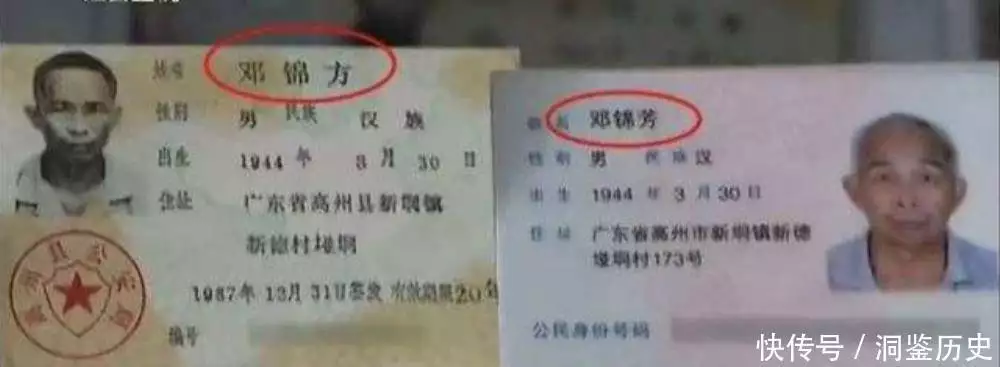 姓名 邓锦方
性别 男 民族 汉族
出生 1944年 3月30日
住址 广东省高州县新垌镇
新德村垯垌
1987年12月31日签发 有效期限20年
编号
邓锦芳
性别 男 民族 汉
出生 1944年3月30日
住址 广东省高州市新垌镇新德
垯垌村173号
公民身份号码
快传号 / 洞鉴历史